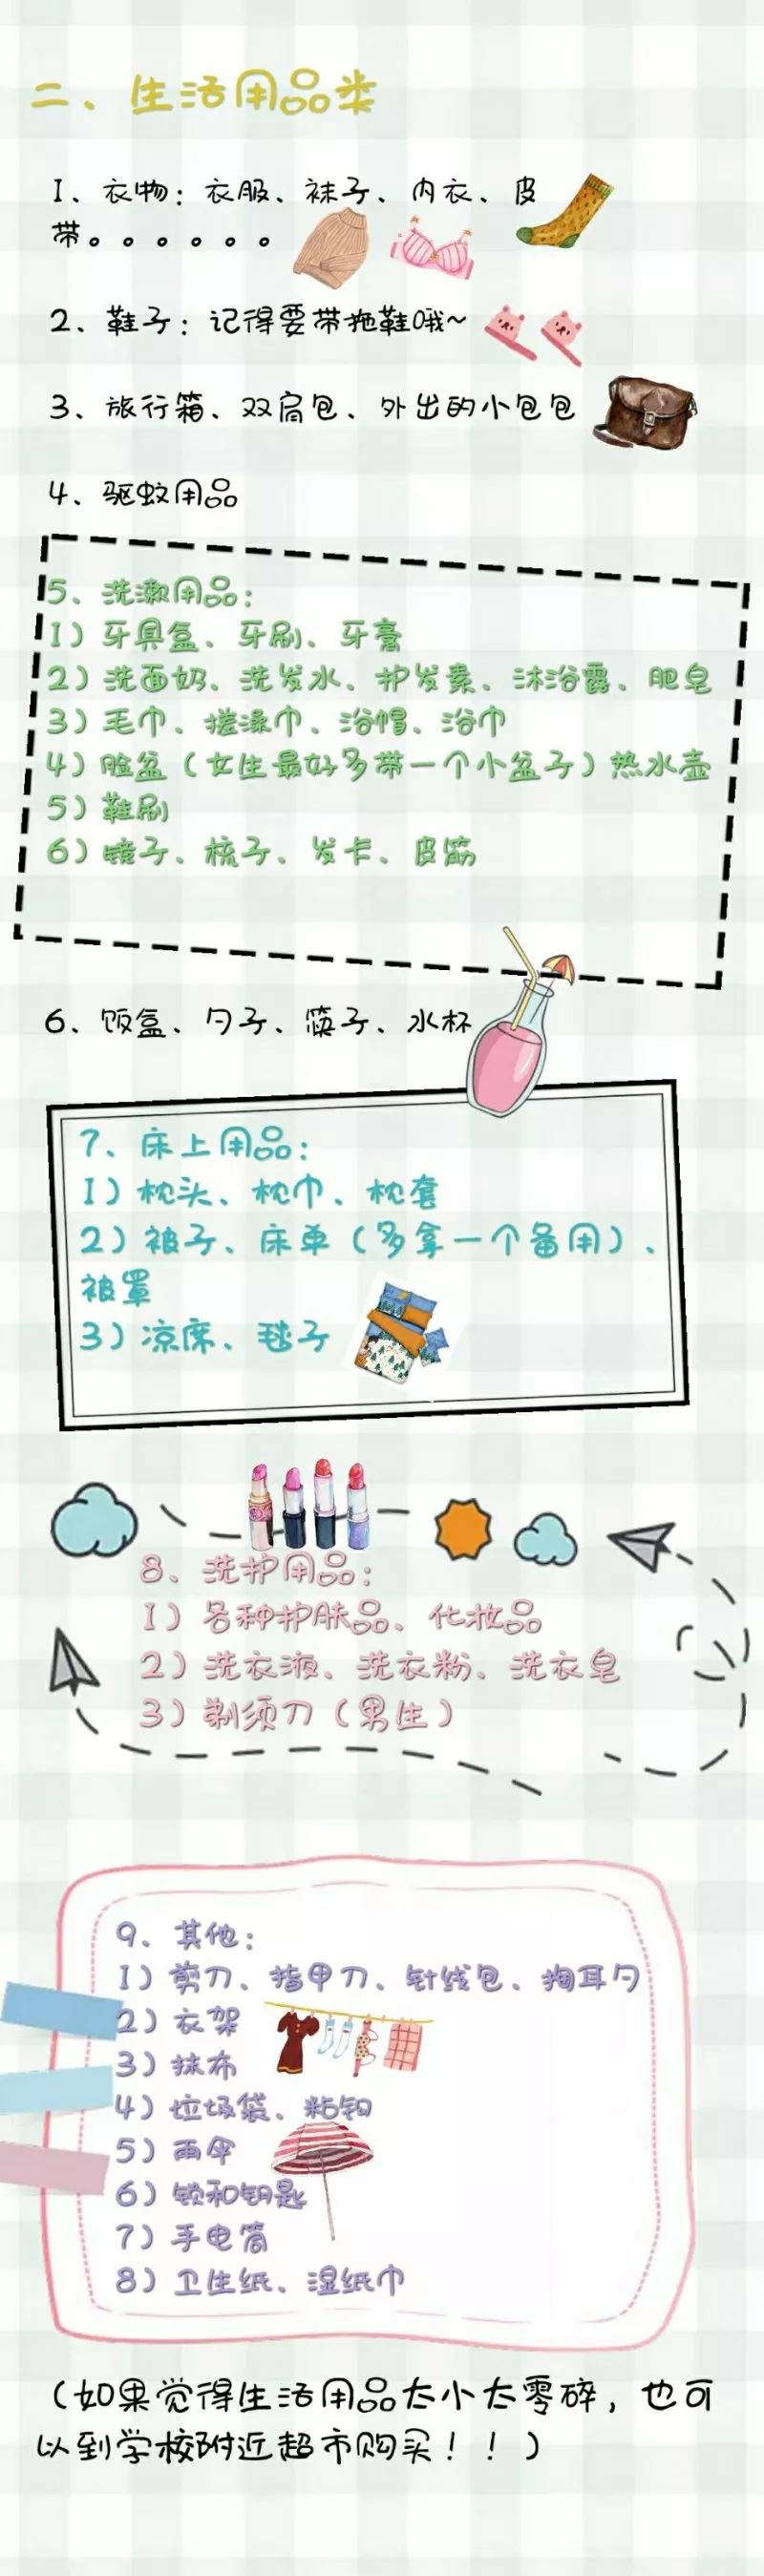 二、生活用品类
1、衣物：衣服、袜子、内衣、皮
带。。。。。。
2、鞋子：记得要带拖鞋哦~
3、旅行箱、双肩包、外出的小包包
4、驱蚊用品
5、洗漱用品：
1）牙具盒、牙刷、牙膏
2）洗面奶、洗发水、护发素、沐浴露、肥皂
3）毛巾、搓澡巾、浴帽、浴巾
4）脸盆（女生最好多带一个小盆子）热水壶
5）鞋刷
6）镜子、梳子、发卡、皮筋
6、饭盒、勺子、筷子、水杯
7、床上用品：
1）枕头、枕巾、枕套
2）被子、床单（多拿一个备用）、
被罩
3）凉席、毯子
8、洗护用品：
1）各种护肤品、化妆品
2）洗衣液、洗衣粉、洗衣皂
3）剃须刀（男生）
9、其他：
1）剪刀、指甲刀、针线包、掏耳勺
2）衣架
3）抹布
4）垃圾袋、粘钩
5）雨伞
6）锁和钥匙
7）手电筒
8）卫生纸、湿纸巾
（如果觉得生活用品太小太零碎，也可
以到学校附近超市购买！！）